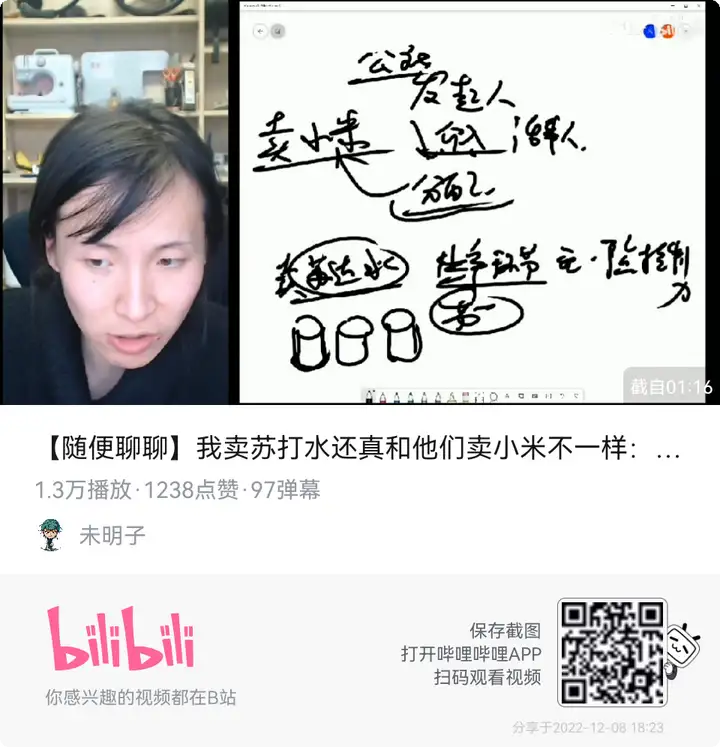 公社
发起人
卖小米
卖苏打水
生产环节
截自01:16
【随便聊聊】我卖苏打水还真和他们卖小米不一样：...
1.3万播放·1238点赞·97弹幕
未明子
bilibili
你感兴趣的视频都在B站
保存截图
打开哔哩哔哩APP
扫码观看视频
分享于2022-12-08 18:23